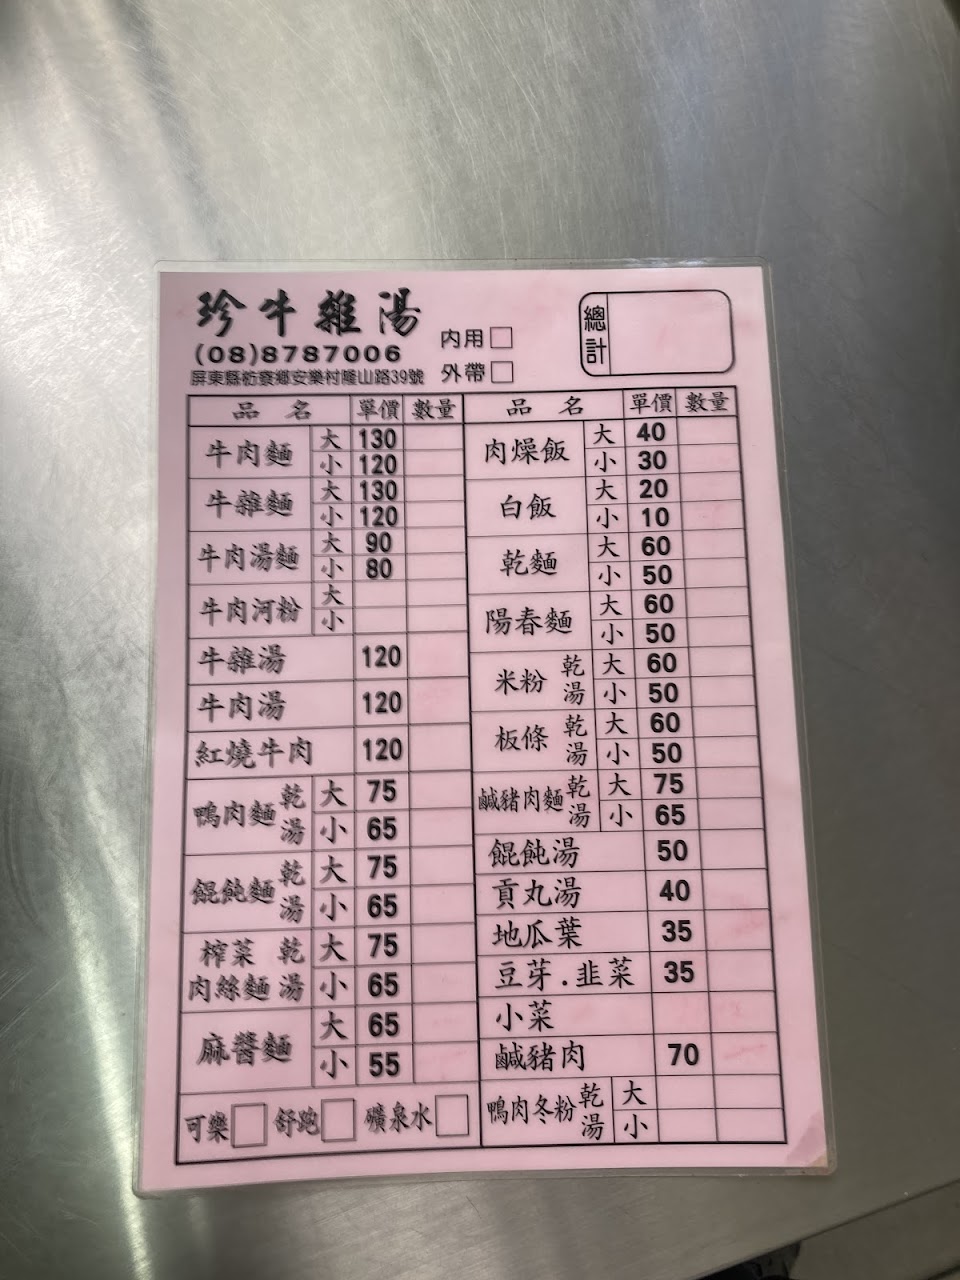 珍牛雜湯
(08)8787006
屏東縣枋寮鄉安樂村隆山路39號
內用
外帶
總計
品 名 單價 數量
牛肉麵 大 130
小 120
牛雜麵 大 130
小 120
牛肉湯麵 大 90
小 80
牛肉河粉 大
小
牛雜湯 120
牛肉湯 120
紅燒牛肉 120
鴨肉麵 乾 湯 大 75
小 65
餛飩麵 乾 湯 大 75
小 65
榨菜 乾 大 75
肉絲麵 湯 小 65
麻醬麵 大 65
小 55
可樂 舒跑 礦泉水
品 名 單價 數量
肉燥飯 大 40
小 30
白飯 大 20
小 10
乾麵 大 60
小 50
陽春麵 大 60
小 50
米粉 乾 湯 大 60
小 50
板條 乾 湯 大 60
小 50
鹹豬肉麵 乾 湯 大 75
小 65
餛飩湯 50
貢丸湯 40
地瓜葉 35
豆芽.韭菜 35
小菜
鹹豬肉 70
鴨肉冬粉 乾 湯 大
小